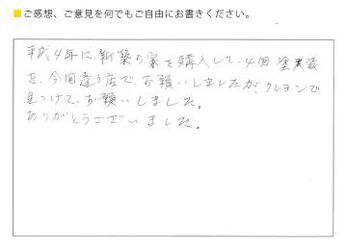 ご感想、ご意見を何でもご自由にお書きください。
平成4年に、新築の家を購入して、4回 塗装
を、今回違う店で、お願いしましたが、クレヨンで
見つけて、お願いしました。
ありがとうございました。